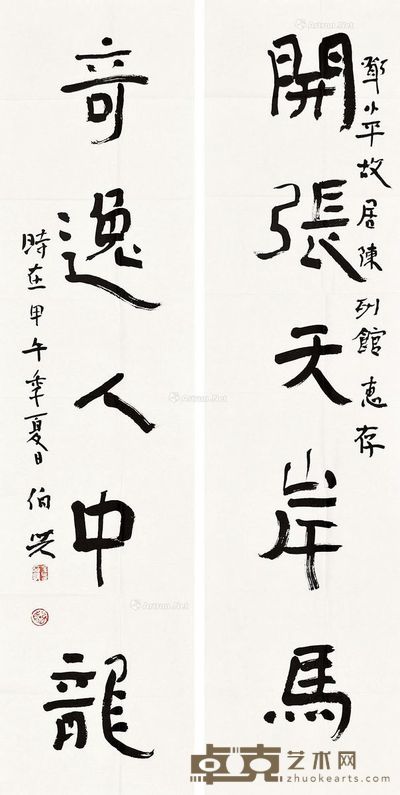 開張天岸馬
鄧小平故居陳列館惠存
奇逸人中龍
時在甲午季夏日 伯
Artron.Net
Artron.Net
Artron.Net
Artron.Net
卓克艺术网
zhuokearts.com